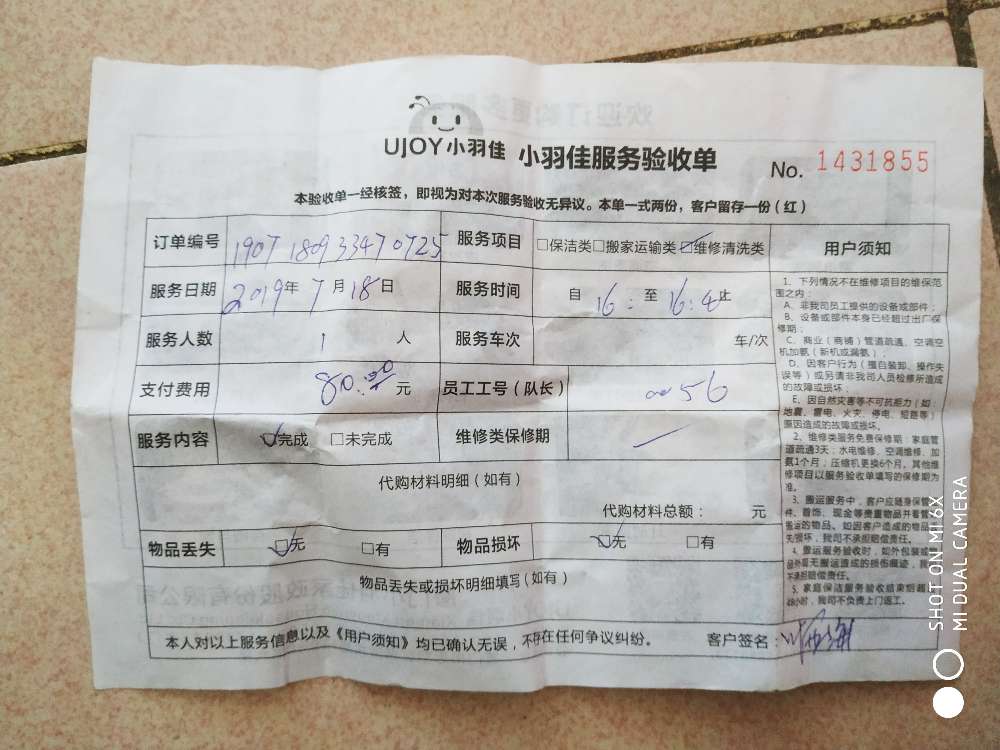 UJOY小羽佳 小羽佳服务验收单 No. 1431855
本验收单一经核签，即视为对本次服务验收无异议。本单一式两份，客户留存一份（红）
订单编号 1907180933470725 服务项目 □保洁类□搬家运输类☑维修清洗类
服务日期 2019年7月18日 服务时间 自 16: 至 16:4 止
服务人数 1 人 服务车次 车/次
支付费用 80.00 元 员工工号（队长） 0056
服务内容 ☑完成 □未完成 维修类保修期 —
代购材料明细（如有）
代购材料总额： 元
物品丢失 ☑无 □有 物品损坏 ☑无 □有
物品丢失或损坏明细填写（如有）
本人对以上服务信息以及《用户须知》均已确认无误，不存在任何争议纠纷。 客户签名：
用户须知
1、下列情况不在维修项目的维保范
围之内：
A、非我司员工提供的设备或部件；
B、设备或部件本身已经超过出厂保
修期；
C、商业（商铺）管道疏通、空调空
机加氨（新机或漏氨）；
D、因客户行为（擅自装卸、操作失
误等）或另请非我司人员检修所造成
的故障或损坏；
E、因自然灾害等不可抗拒力（如
地震、雷电、火灾、停电、短路等）
原因造成的故障或损坏。
2、维修类服务免费保修期：家庭管
道疏通3天；水电维修、空调维修、加
氨1个月；压缩机更换6个月。其他维
修项目以服务验收单填写的保修期为
准。
3、搬运服务中，客户应随身保管
件、首饰、现金等贵重物品并看管
搬运的物品。如因客户造成的物品
失损坏，我司不承担赔偿责任。
4、搬运服务验收时，如外包装或
品外观无搬运造成的损伤痕迹，我
不承担赔偿责任。
5、家庭保洁服务验收结束后超过
48小时，我司不负责上门返工。
SHOT ON MI 6X
MI DUAL CAMERA